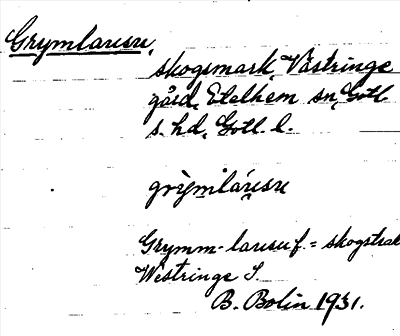 Grymlausu,
skogsmark, Västringe
gård, Etelhem sn, Gotl.
s. hd, Gotl. l.
Grymm-lausu f. = skogstrak
Westringe S.
B. Bolin 1931.